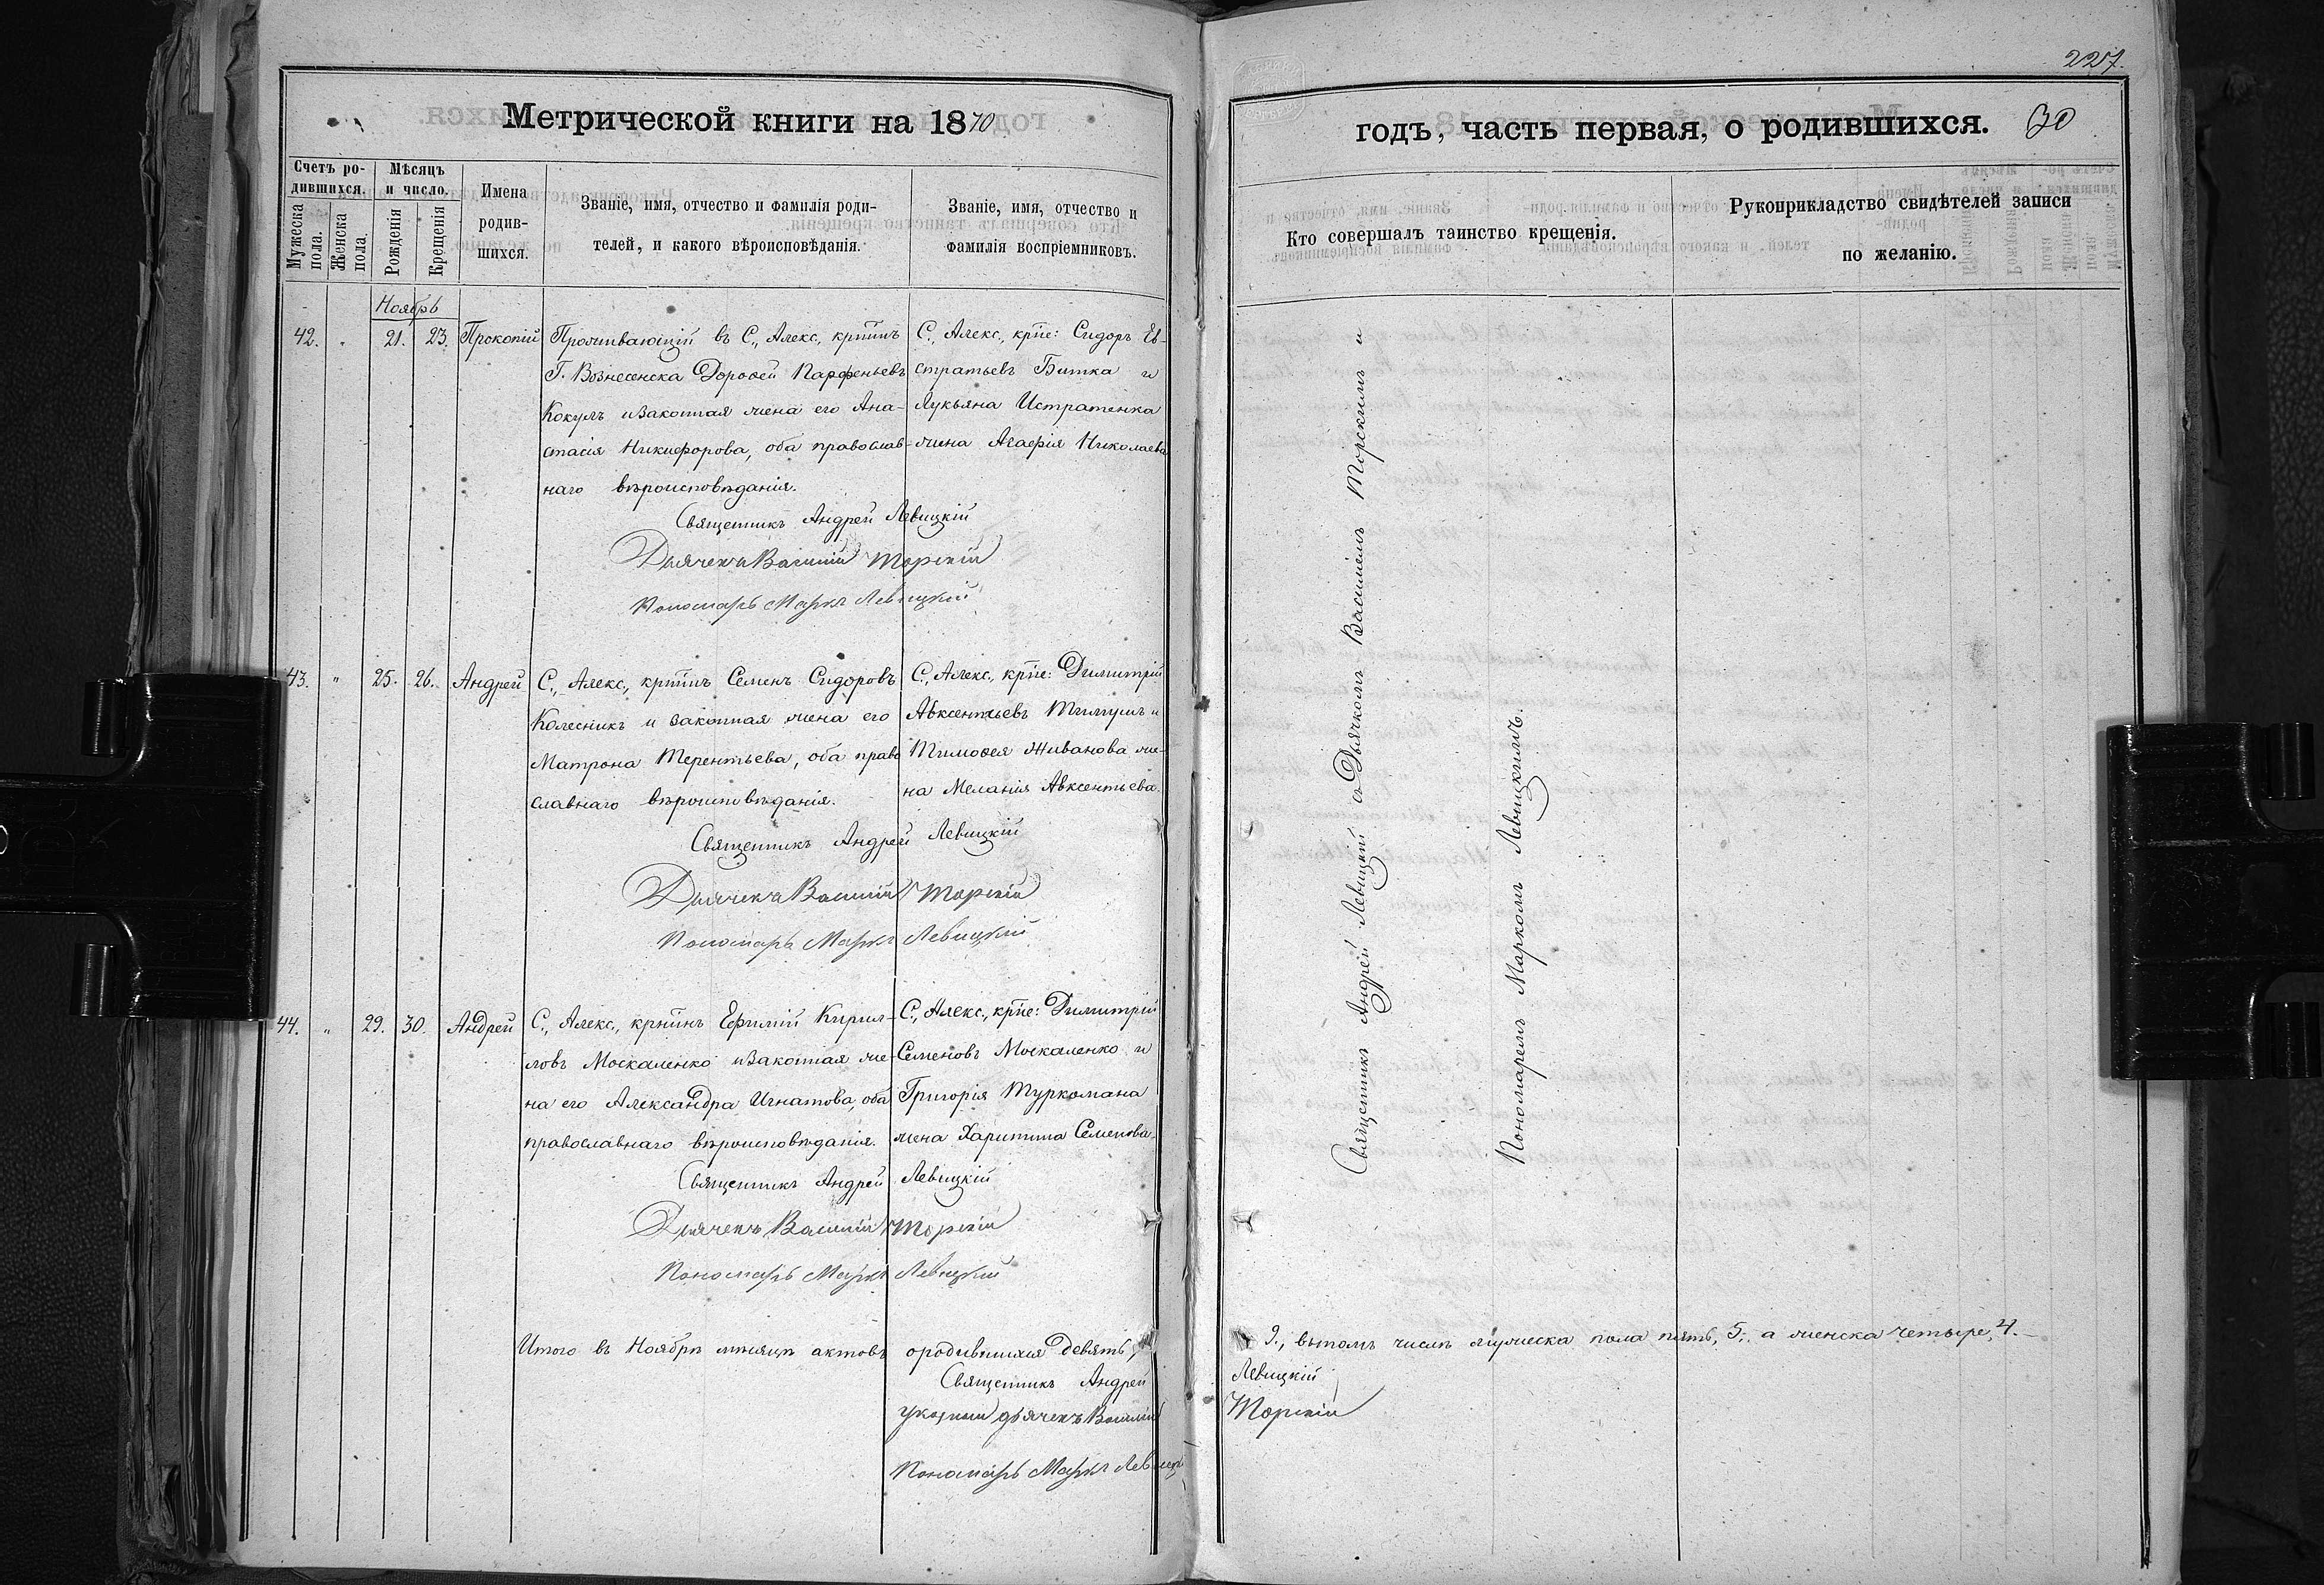 227.
Метрической книги на 1870
годъ, часть первая, о родившихся. 30
Счетъ ро-
дившихся.
Мужеска
пола.
Женска
пола.
Мѣсяцъ
и число.
Рожденія
Крещенія
Имена
родив-
шихся.
Званіе, имя, отчество и фамилія роди-
телей, и какого вѣроисповѣданія.
Званіе, имя, отчество и
фамилія воспріемниковъ.
Кто совершалъ таинство крещенія.
Рукоприкладство свидѣтелей записи
по желанію.
Ноябрь
42. " 21. 23. Прокопій
Проживающій въ С., Алекс., крт͠инъ
Г. Вознесенска Дороѳей Парѳеньевъ
Кокулъ и законная жена его Ана-
стасія Никифорова, оба православ-
наго вѣроисповѣданія.
С., Алекс., крт͠не: Сидоръ Ев-
стратьевъ Битка и
Лукьяна Истратенка
жена Агафія Николаева
Священникъ Андрей Левицкій
Дьячекъ Василій Торскій
Пономарь Маркъ Левицкій
43. " 25. 26. Андрей
С., Алекс., крт͠инъ Семенъ Сидоровъ
Колесникъ и законная жена его
Матрона Терентьева, оба право
славнаго вѣроисповѣданія.
С., Алекс., крт͠не: Димитрій
Авксентьевъ и
Тимоѳея Живанова же-
на Меланія Авксентьева.
Священникъ Андрей Левицкій
Дьячекъ Василій Торскій
Пономарь Маркъ Левицкій
44. " 29. 30. Андрей
С., Алекс., крт͠инъ Ефимій Кирил-
ловъ Москаленко и законная же-
на его Александра Игнатова, оба
православнаго вѣроисповѣданія.
С., Алекс., крт͠не: Димитрій
Семеновъ Москаленко и
Григорія Туркомана
жена Харитина Семенова.
Священникъ Андрей Левицкій
Дьячекъ Василій Торскій
Пономарь Маркъ Левицкій
Итого въ Ноябрѣ мѣсяцѣ актовъ о родившихся девять, 9., въ томъ числѣ мужеска пола пять, 5., а женска четыре, 4.
Священникъ Андрей Левицкій
указный дьячекъ Василій Торскій
Пономарь Маркъ Левицкій
Священникъ Андрей Левицкій съ Дьячкомъ Василіемъ Торскимъ и
Пономаремъ Маркомъ Левицкимъ.